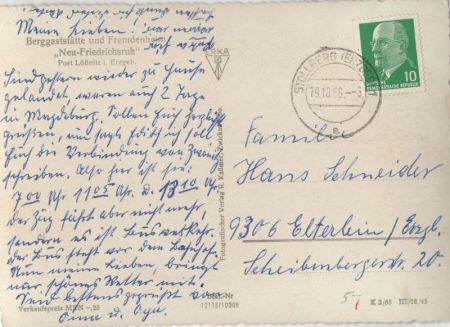 Meine Lieben!
Berggaststätte und Fremdenheim
„Neu-Friedrichsruh"
Post Lößnitz i. Erzgeb.
Sind gestern wieder zu Hause
gelandet, waren auch 2 Tage
in Magdeburg. Sollen Euch herzlich
grüßen, und sagte Edith ich soll
Euch die Verbindung von Zwönitz
schreiben. Also hier ist sie:
7 00 Uhr 11 05 Uhr u. 13 10 Uhr
der Zug fährt aber nicht mehr,
sondern es ist Busverkehr.
Der Bus steht vor dem Bahnhof.
Nun meine Lieben, bringt
nur schönes Wetter mit.
Seid bestens gegrüßt von
Verkaufspreis MDN -,20
Fotografischer Verlag R. Kallmer, Zwickau
12115/10306
STOLLBERG (ERZGEB) 1
19.10.66.
10
DEUTSCHE DEMOKRATISCHE REPUBLIK
Familie
Hans Schneider
9306 Elterlein / Erzg.
Scheibenbergerstr. 20.
5,-